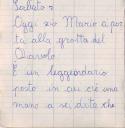 Sabato
Oggi zio Mario ci por
ta alla grotta del
Diavolo.
È un leggendario
posto in cui c'è una
mano a sei dita che